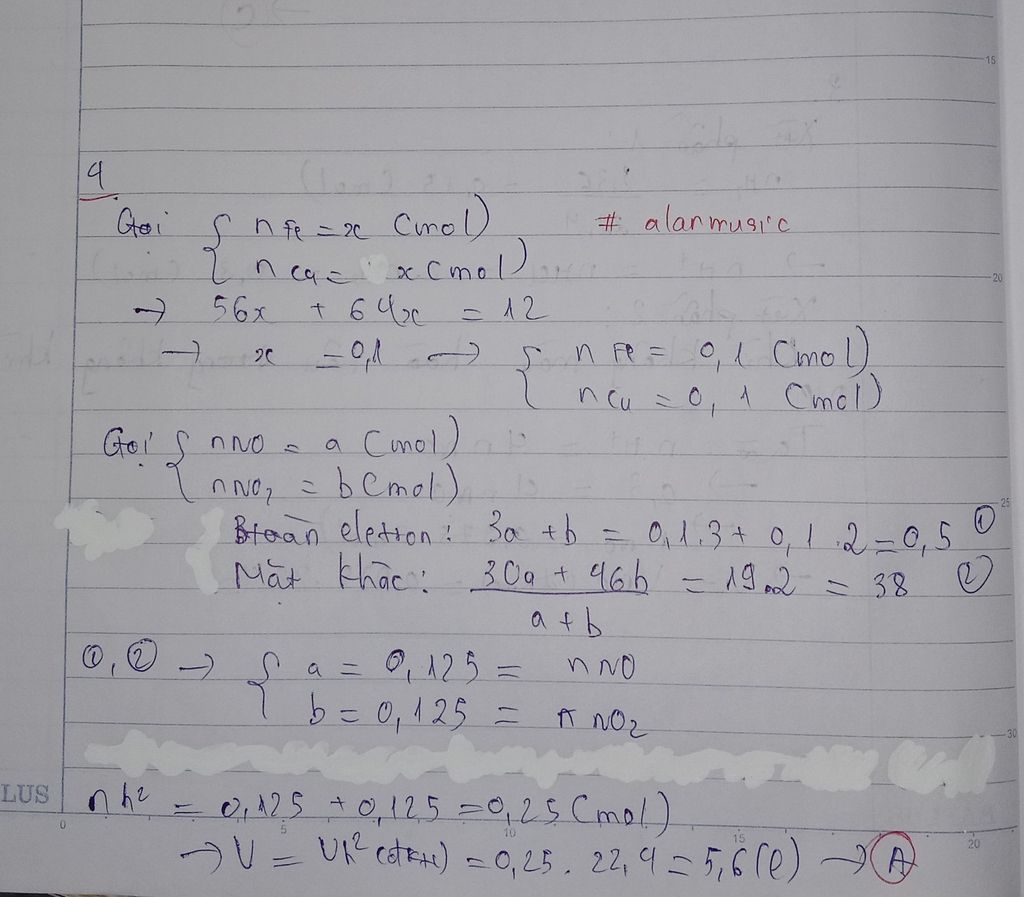 4
Gọi { nFe = x (mol) # alanmusic
nCu = x (mol)
→ 56x + 64x = 12
→ x = 0,1 → { nFe = 0,1 (mol)
nCu = 0,1 (mol)
Gọi { nNO = a (mol)
nNO2 = b (mol)
Btoàn eletron: 3a + b = 0,1.3 + 0,1.2 = 0,5 ①
Mặt khác: 30a + 46b / a + b = 19.2 = 38 ②
①, ② → { a = 0,125 = nNO
b = 0,125 = nNO2
nh2 = 0,125 + 0,125 = 0,25 (mol)
→ V = Vh2 (đktc) = 0,25 . 22,4 = 5,6 (l) → A
LUS
0 5 10 15 20
15
20
25
30